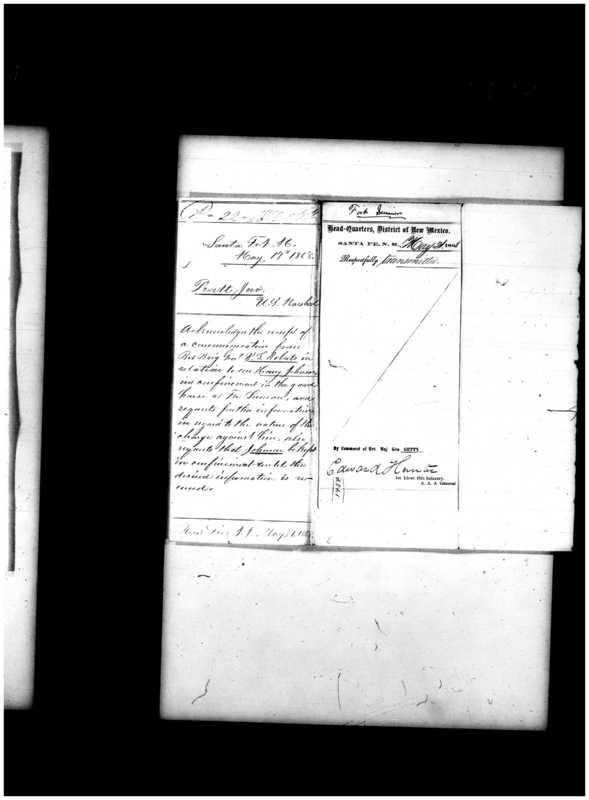 Santa Fe N.M.
May 19th 1868.
Pratt Jno.
U.S. Marshal
Acknowledges the receipt of
a communication from
Bvt Brig Genl B.S. Roberts in
relation to one Henry Johnson
in confinement in the guard
house at Ft. Sumner, and
requests further information
in regard to the nature of the
charge against him, also
requests that Johnson be kept
in confinement until the
desired information is re-
ceived.
Fort Sumner
Head-Quarters, District of New Mexico.
SANTA FE, N. M., May 21 1868
Respectfully transmitted.
By Command of Bvt. Maj. Gen. GETTY.
Edward Hunter
1st Lieut. 12th Infantry.
A. A. A. General